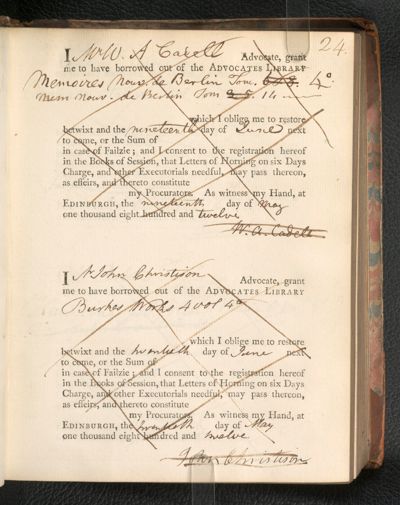 24.
I Mr W. A Cadell Advocate, grant
me to have borrowed out of the ADVOCATES LIBRARY
Memoires Nouv. de Berlin Tom. 4º
mem nouv. de Berlin Tom 14
which I oblige me to restore
betwixt and the nineteenth day of June next
to come, or the Sum of
in case of Failzie; and I consent to the registration hereof
in the Books of Session, that Letters of Horning on six Days
Charge, and other Executorials needful, may pass thereon,
as effeirs, and thereto constitute
my Procurators. As witness my Hand, at
EDINBURGH, the nineteenth day of May
one thousand eight hundred and twelve
W. A. Cadell
I Mr John Christison Advocate, grant
me to have borrowed out of the ADVOCATES LIBRARY
Burkes Works 4 vol 4to
which I oblige me to restore
betwixt and the twentieth day of June next
to come, or the Sum of
in case of Failzie; and I consent to the registration hereof
in the Books of Session, that Letters of Horning on six Days
Charge, and other Executorials needful, may pass thereon,
as effeirs, and thereto constitute
my Procurators. As witness my Hand, at
EDINBURGH, the twentieth day of May
one thousand eight hundred and twelve
John Christison